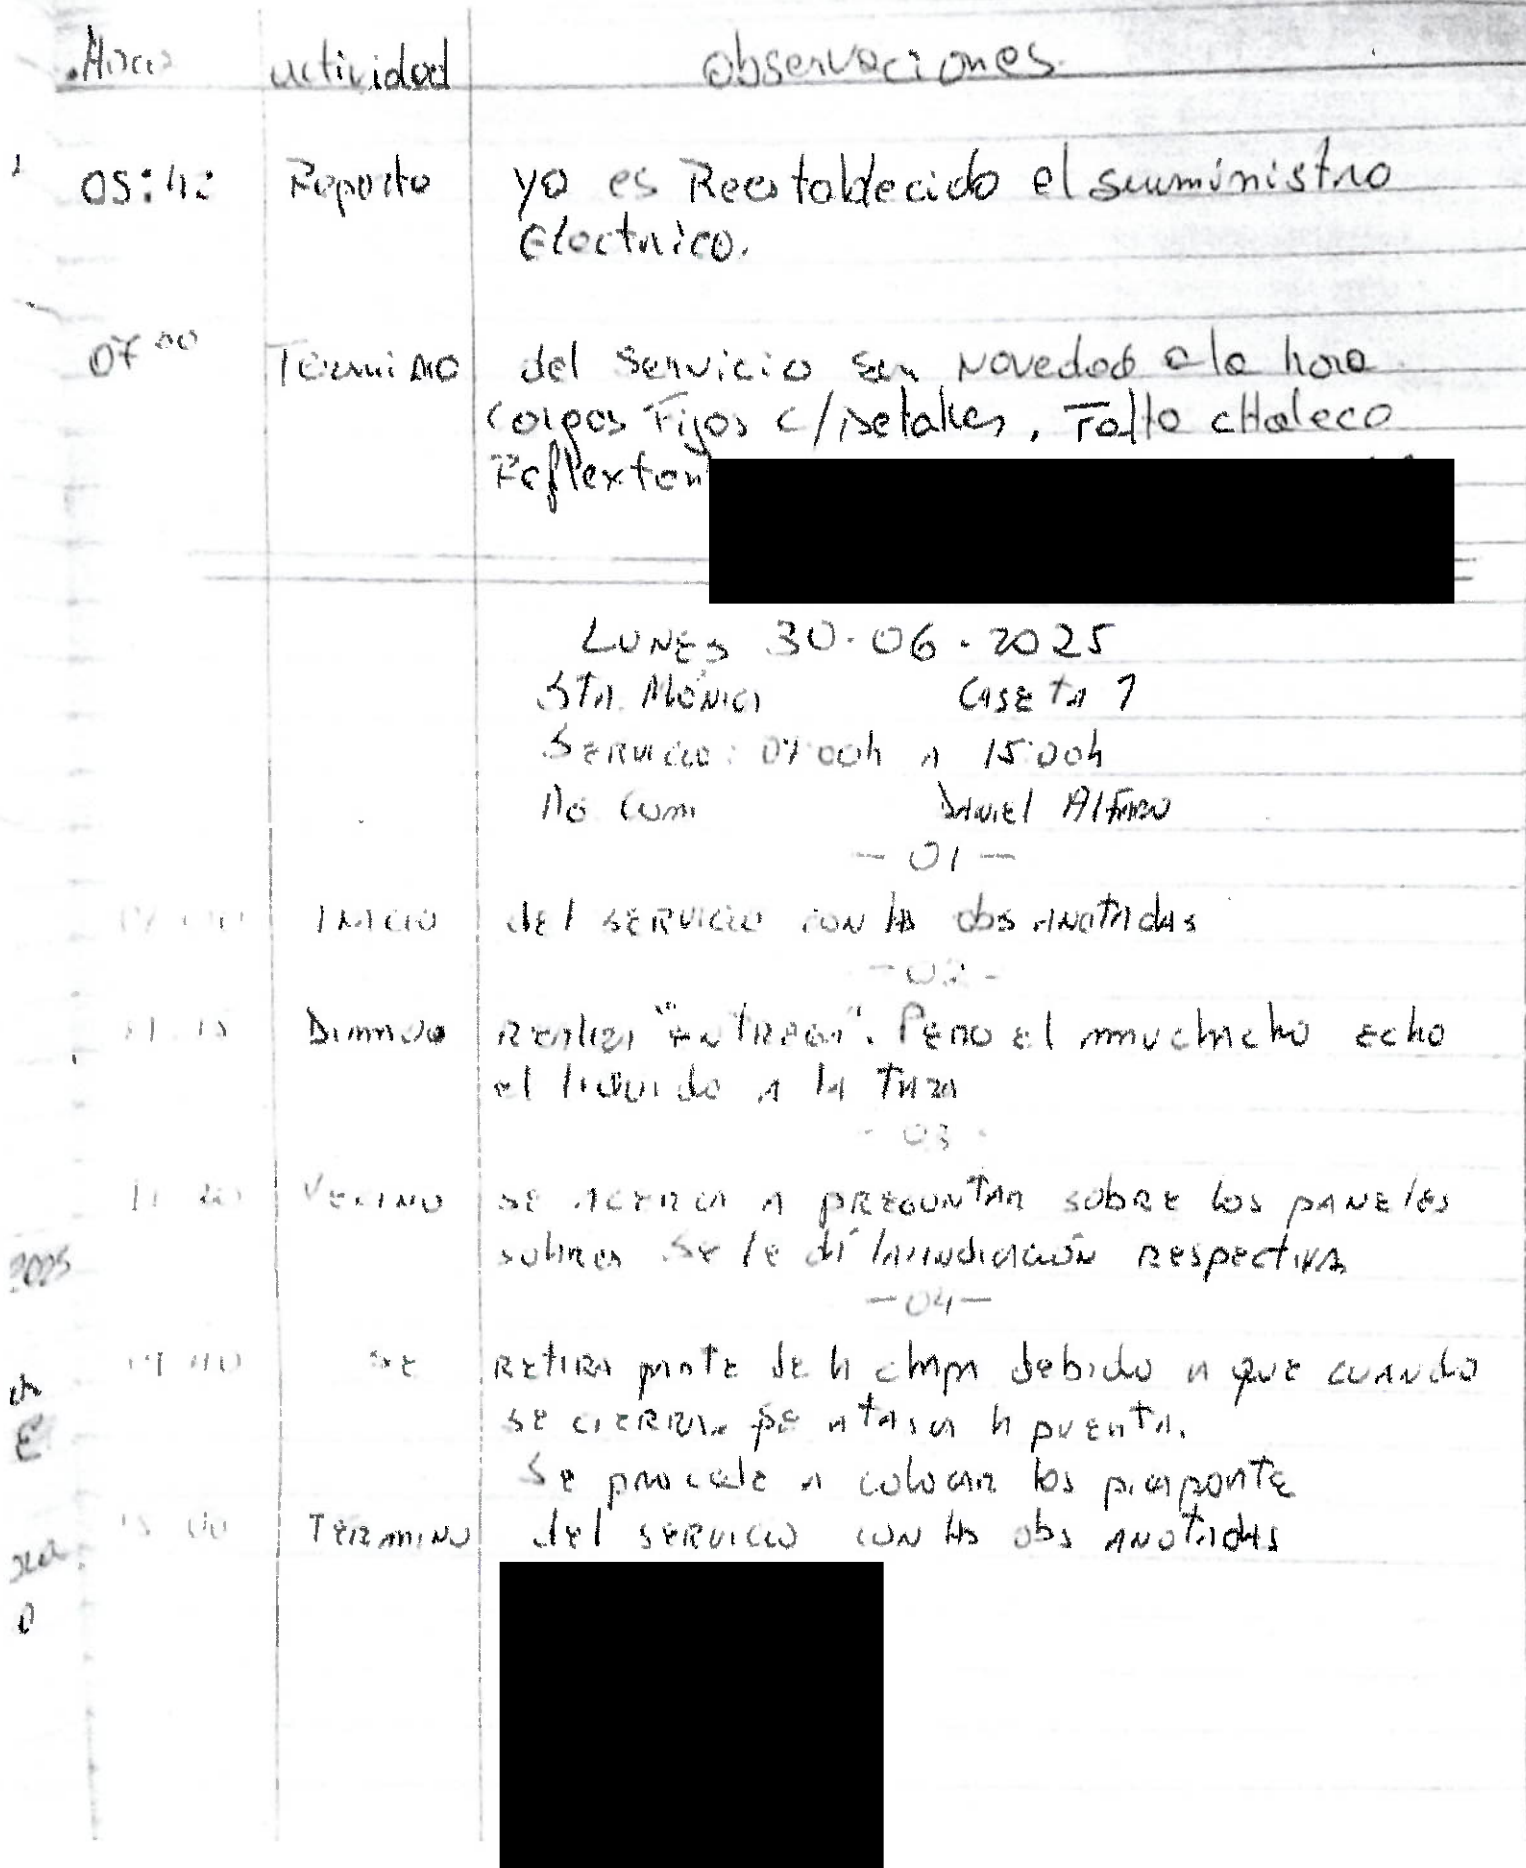 Hora actividad observaciones
05:42 Reporto ya es Reestablecido el suministro
Electrico.
07 00 Termino del Servicio sin Novedad a la hora
Cargos Fijos c/Detalles, Falta cHaleco
LUNES 30-06-2025
STA. MÓNICA CASETA 1
SERVICIO: 07:00h A 15:00h
DANIEL ALFARO
- 01 -
INICIO del SERVICIO CON LAS obs ANOTADAS
- 02 -
REALIZA "ENTREGA". PERO el muchacho echo
el liquido A LA TAZA
- 03 -
VECINO SE ACERCA A PREGUNTAR SOBRE LOS PANELES
SOLARES SE LE dí LA INDICACIÓN RESPECTIVA
2025
- 04 -
SE RETIRA PARTE DE LA CHAPA debido A QUE CUANDO
SE CIERRA SE ATASCA LA PUERTA.
SE PROCEDE A COLOCAR LOS
15:00 TERMINO del SERVICIO CON LAS obs ANOTADAS